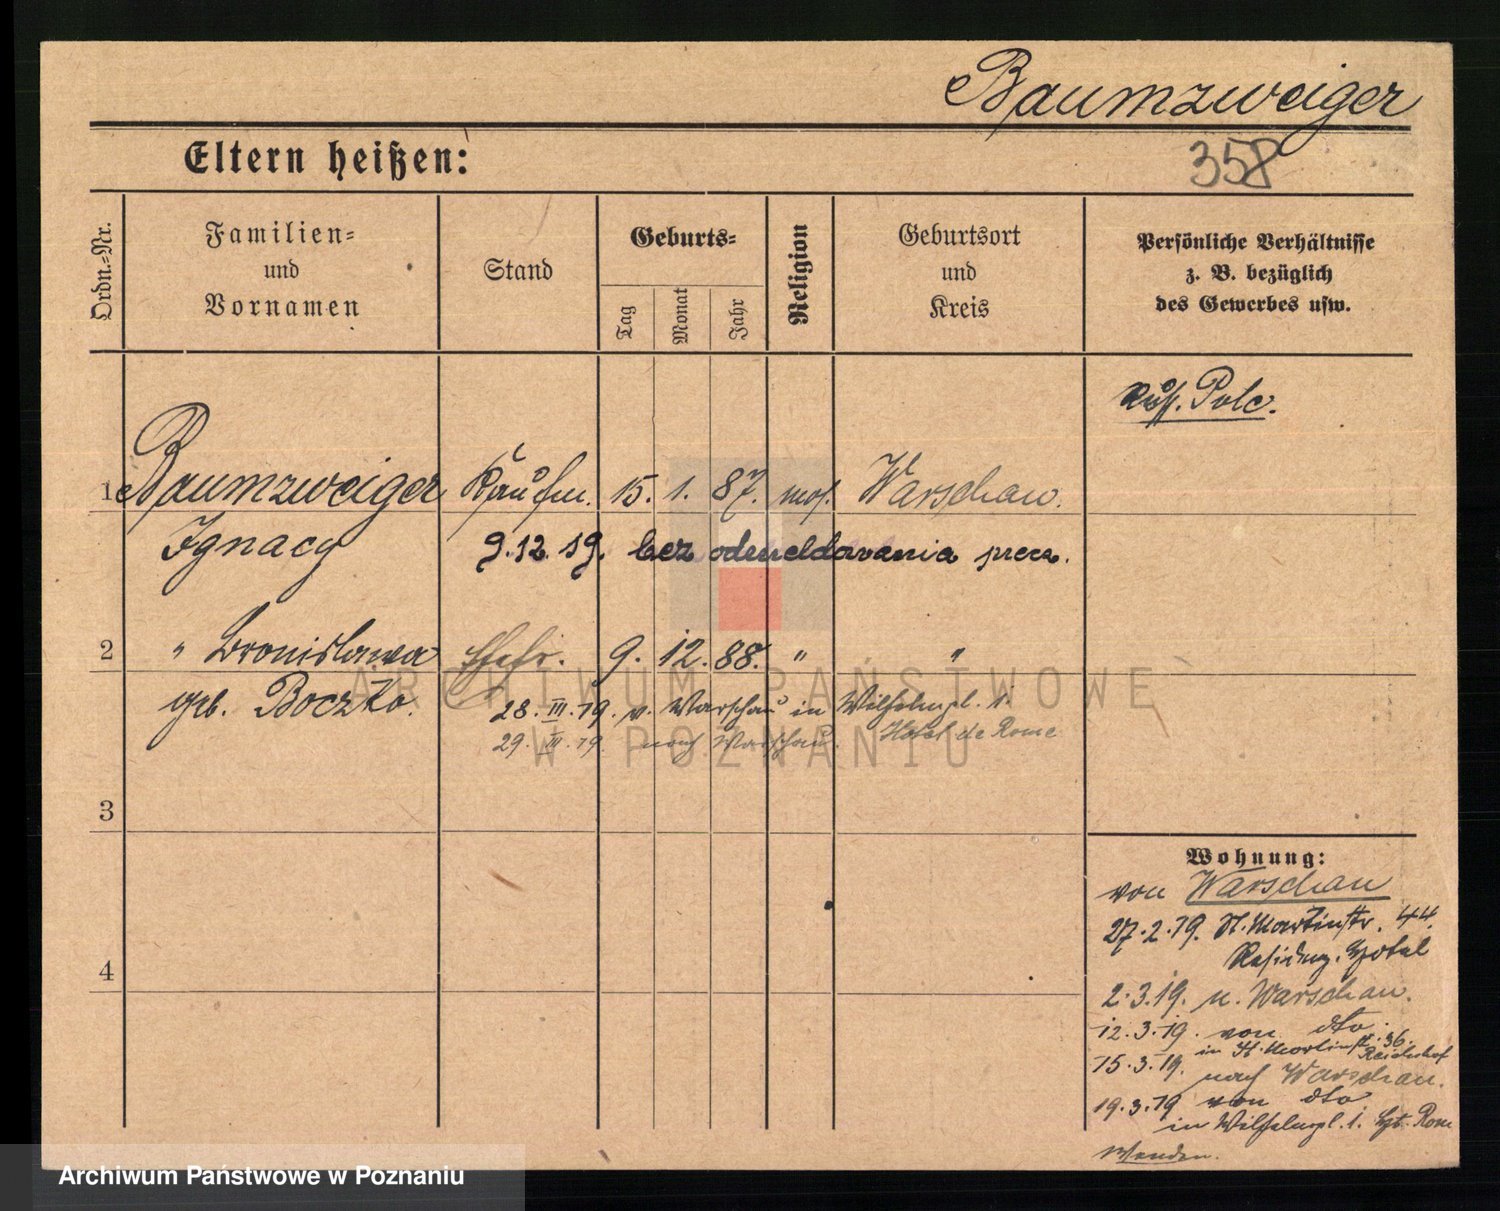 Baumzweiger
358
Eltern heißen:
Ordn.-Nr.
Familien-
und
Vornamen
Stand
Geburts-
Tag
Monat
Jahr
Religion
Geburtsort
und
Kreis
Persönliche Verhältnisse
z. B. bezüglich
des Gewerbes usw.
Russ. Pole.
1 Baumzweiger Kaufm. 15. 1. 87. mos. Warschau.
Ignacy 9.12.19. bez odmeldowania
2 " Bronisława Ehefr. 9. 12. 88. " "
geb. Boczko. 28. III. 19. v. Warschau in Wilhelmpl. 1.
29. III. 19. nach Warschau. Hotel de Rome
3
4
Wohnung:
von Warschau
27.2.19. St. Martinstr. 44.
Residenz. Hotel
2.3.19. n. Warschau.
12.3.19. von dto.
in St. Martinstr. 36.
Reichshof
15.3.19. nach Warschau.
19.3.19 von dto
in Wilhelmpl. 1. Hot. Rom
Wenden.
ARCHIWUM PAŃSTWOWE
W POZNANIU
Archiwum Państwowe w Poznaniu